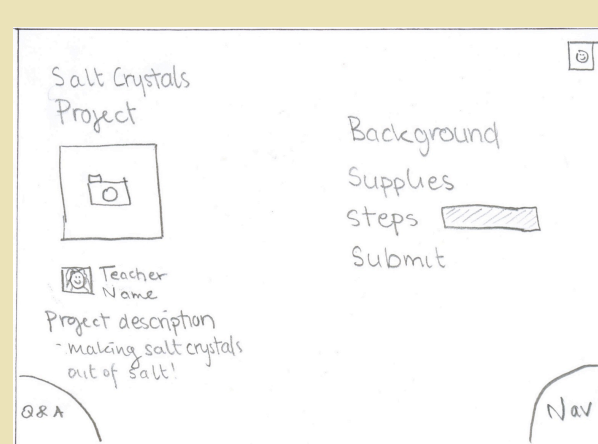 Salt Crystals
Project
Teacher
Name
Project description
- making salt crystals
out of salt!
Q&A
Background
Supplies
steps
Submit
Nav